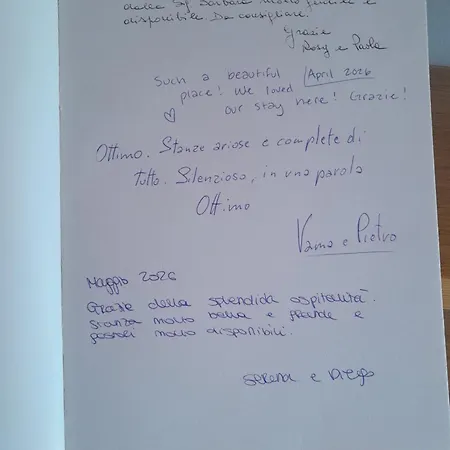 dalla Sig. Barbara molto gentile e
disponibile. Da consigliare.
Grazie
Rosy e Paola
Such a beautiful
place! We loved
our stay here! Grazie!
April 2026
Ottimo. Stanze ariose e complete di
tutto. Silenzioso, in una parola
Ottimo
e Pietro
Maggio 2026
Grazie della splendida ospitalità.
stanza molto bella e grande e
molto disponibili.
Serena e Diego